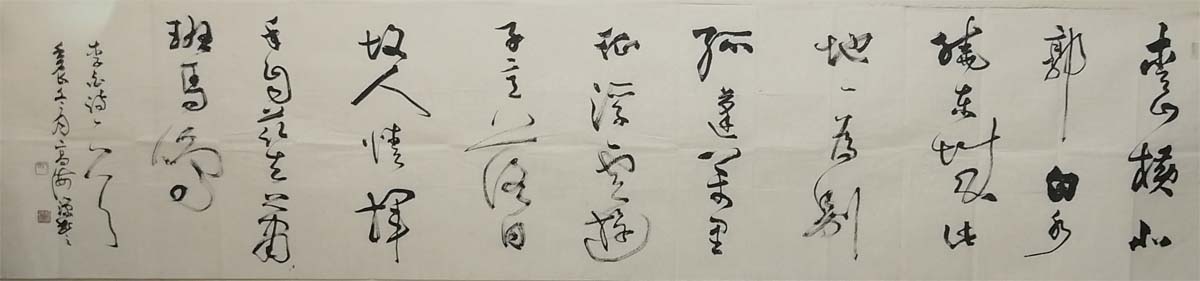 青山横北
郭白水
繞東城此
地一為別
孤蓬萬里
征浮雲遊
子意落日
故人情揮
手自茲去蕭蕭
班馬鳴
李白詩一首